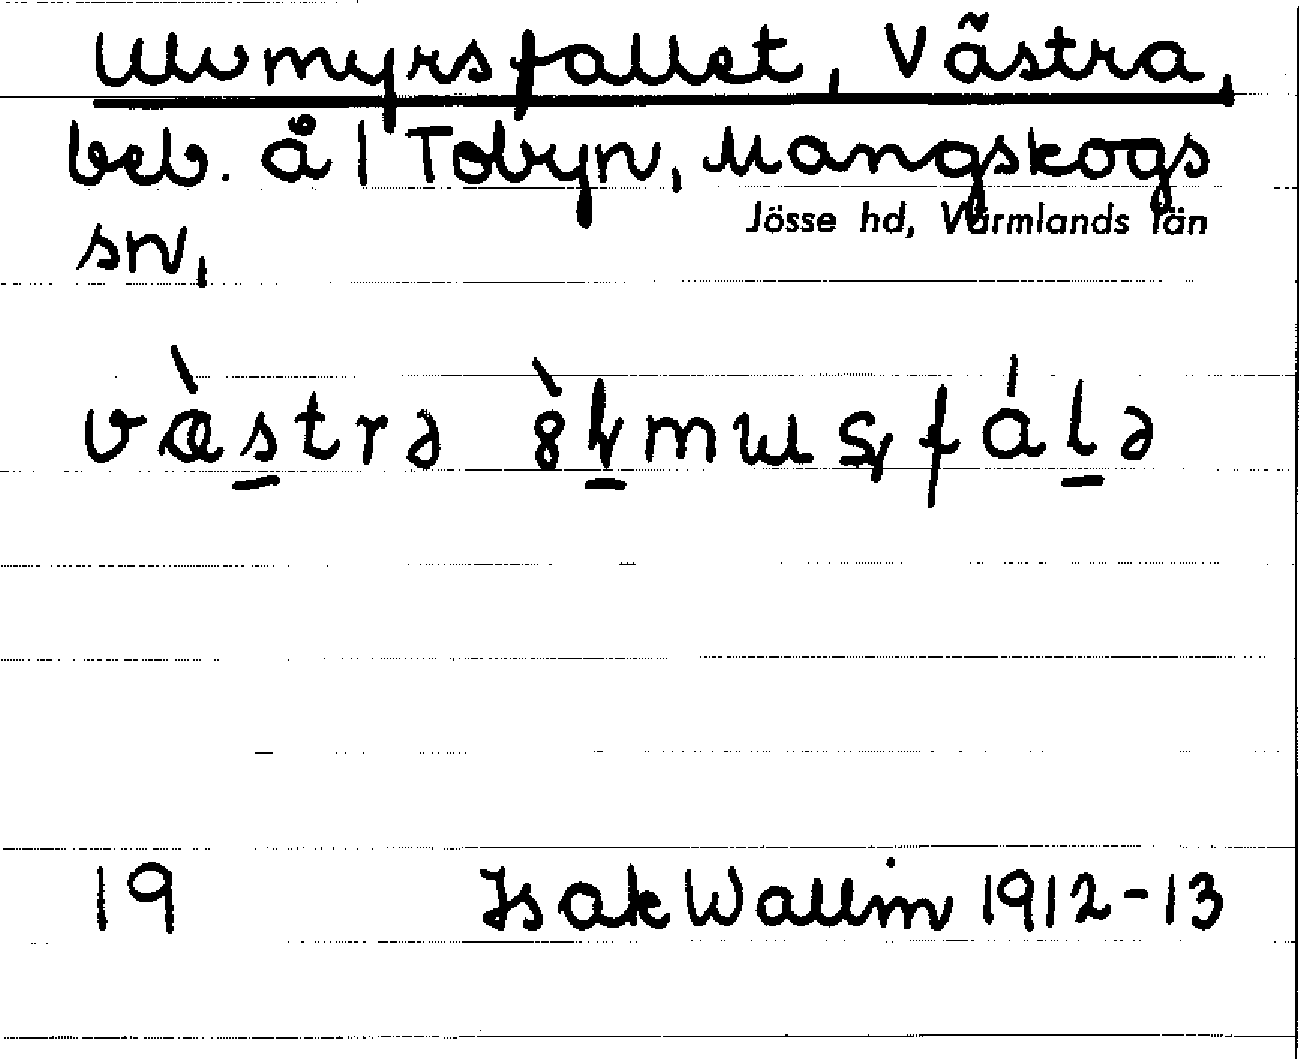 Ulvmyrsfallet, Västra,
beb. å 1 Tobyn, Mangskogs
Jösse hd, Värmlands län
sn,
19 Isak Wallin 1912-13